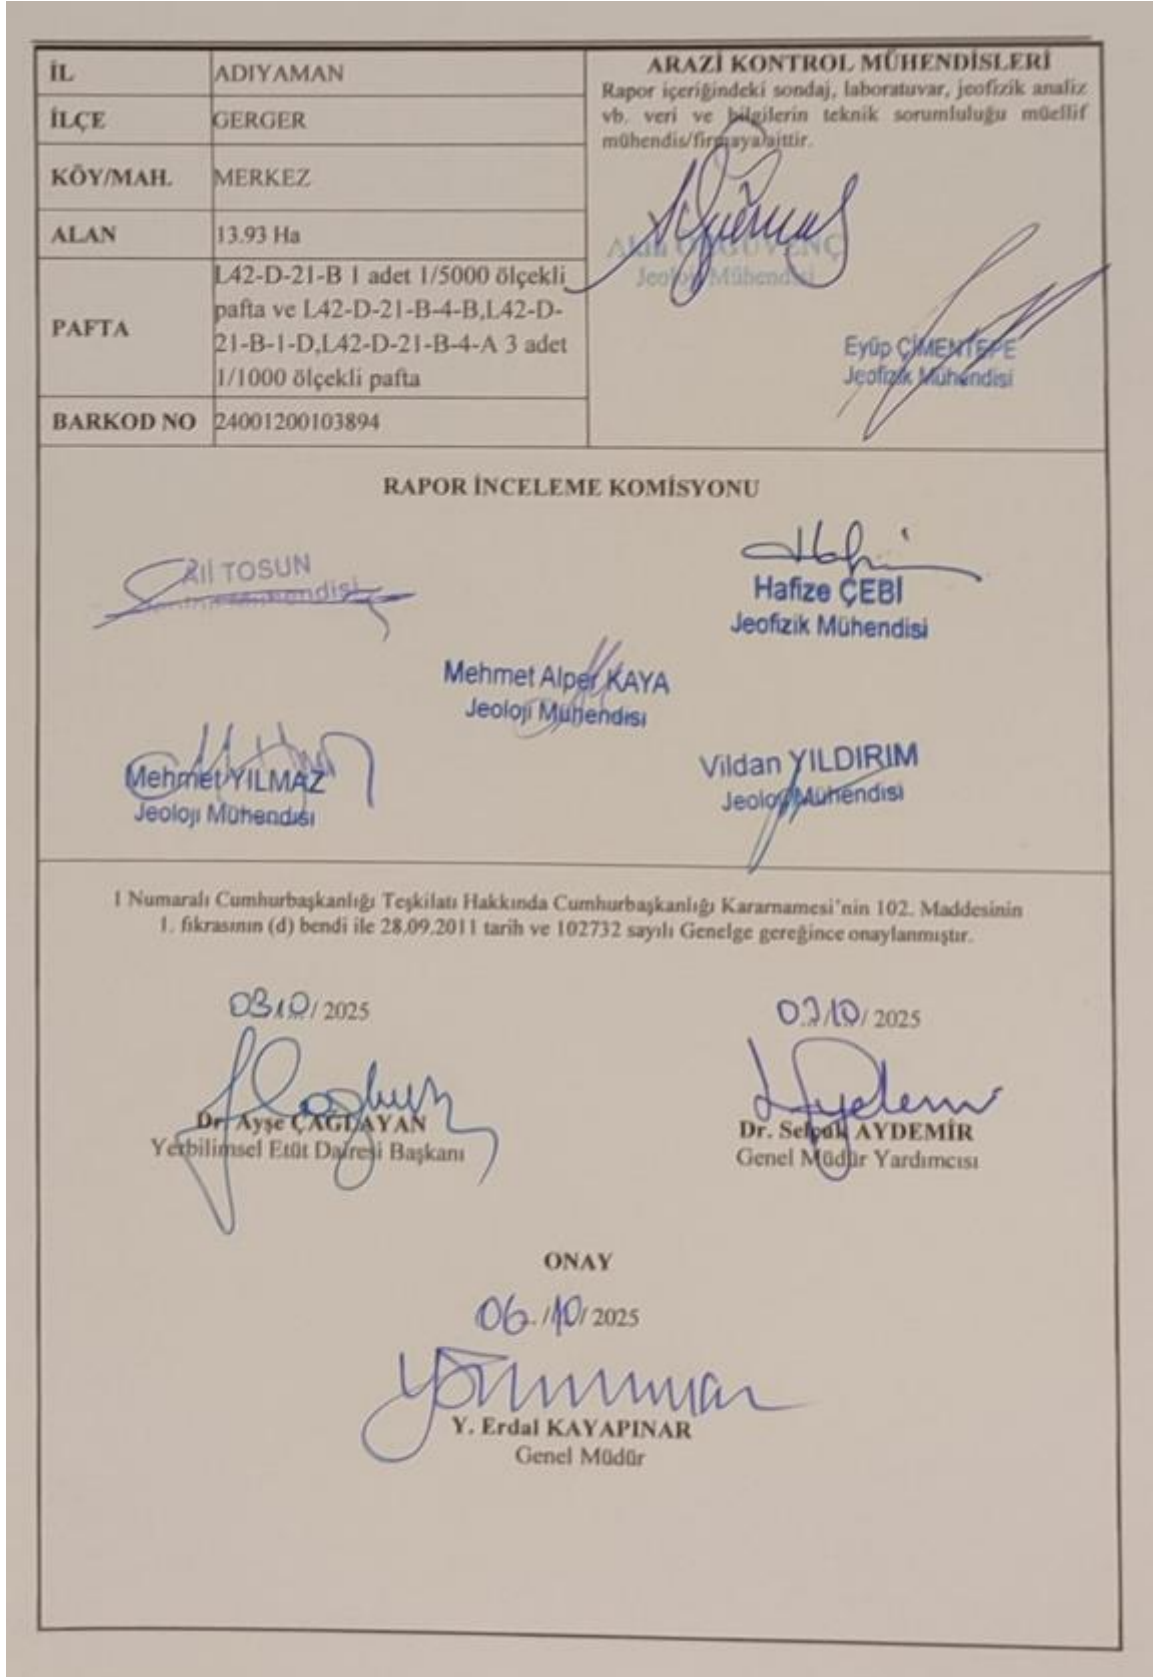 İL ADIYAMAN
İLÇE GERGER
KÖY/MAH. MERKEZ
ALAN 13.93 Ha
PAFTA L42-D-21-B 1 adet 1/5000 ölçekli
pafta ve L42-D-21-B-4-B,L42-D-
21-B-1-D,L42-D-21-B-4-A 3 adet
1/1000 ölçekli pafta
BARKOD NO 24001200103894
ARAZİ KONTROL MÜHENDİSLERİ
Rapor içeriğindeki sondaj, laboratuvar, jeofizik analiz
vb. veri ve bilgilerin teknik sorumluluğu müellif
mühendis/firmaya aittir.
Jeoloji Mühendisi
Eyüp ÇİMENTEPE
Jeofizik Mühendisi
RAPOR İNCELEME KOMİSYONU
Ali TOSUN
Mühendisi
Hafize ÇEBİ
Jeofizik Mühendisi
Mehmet Alper KAYA
Jeoloji Mühendisi
Mehmet YILMAZ
Jeoloji Mühendisi
Vildan YILDIRIM
Jeoloji Mühendisi
1 Numaralı Cumhurbaşkanlığı Teşkilatı Hakkında Cumhurbaşkanlığı Kararnamesi'nin 102. Maddesinin
1. fıkrasının (d) bendi ile 28.09.2011 tarih ve 102732 sayılı Genelge gereğince onaylanmıştır.
03.10/ 2025
03/10/ 2025
Dr. Ayşe ÇAĞLAYAN
Yerbilimsel Etüt Dairesi Başkanı
Dr. Selçuk AYDEMİR
Genel Müdür Yardımcısı
ONAY
06./10/ 2025
Y. Erdal KAYAPINAR
Genel Müdür